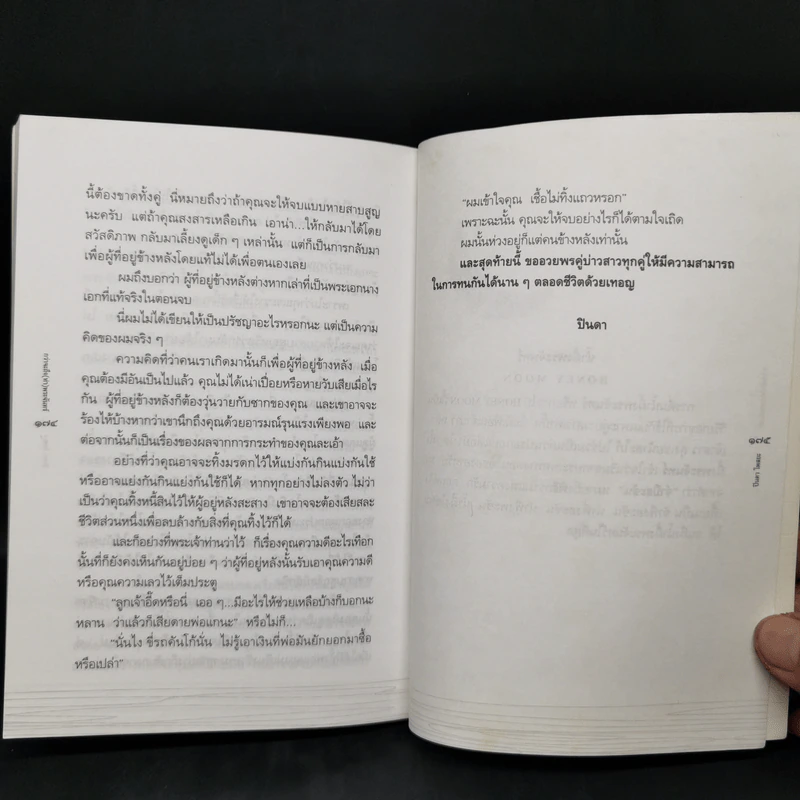 นี้ต้องขาดทั้งคู่ นี่หมายถึงว่าถ้าคุณจะให้จบแบบหายสาบสูญ
นะครับ แต่ถ้าคุณสงสารเหลือเกิน เอาน่า...ให้กลับมาได้โดย
สวัสดิภาพ กลับมาเลี้ยงดูเด็ก ๆ เหล่านั้น แต่ก็เป็นการกลับมา
เพื่อผู้ที่อยู่ข้างหลังโดยแท้ไม่ได้เพื่อตนเองเลย
ผมถึงบอกว่า ผู้ที่อยู่ข้างหลังต่างหากเล่าที่เป็นพระเอกนาง
เอกที่แท้จริงในตอนจบ
นี่ผมไม่ได้เขียนให้เป็นปรัชญาอะไรหรอกนะ แต่เป็นความ
คิดของผมจริง ๆ
ความคิดที่ว่าคนเราเกิดมานั้นก็เพื่อผู้ที่อยู่ข้างหลัง เมื่อ
คุณต้องมีอันเป็นไปแล้ว คุณไม่ได้เน่าเปื่อยหรือหายวับเสียเมื่อไร
กัน ผู้ที่อยู่ข้างหลังก็ต้องวุ่นวายกับซากของคุณ และเขาอาจจะ
ร้องไห้บ้างหากว่าเขานึกถึงคุณด้วยอารมณ์รุนแรงเพียงพอ และ
ต่อจากนั้นก็เป็นเรื่องของผลจากการกระทำของคุณละเอ้า
อย่างที่ว่าคุณอาจจะทิ้งมรดกไว้ให้แบ่งกันกินแบ่งกันใช้
หรืออาจแย่งกันกินแย่งกันใช้ก็ได้ หากทุกอย่างไม่ลงตัว ไม่ว่า
เป็นว่าคุณทิ้งหนี้สินไว้ให้ผู้อยู่หลังสะสาง เขาอาจจะต้องเสียสละ
ชีวิตส่วนหนึ่งเพื่อลบล้างกับสิ่งที่คุณทิ้งไว้ก็ได้
และก็อย่างที่พระเจ้าท่านว่าไว้ ก็เรื่องคุณความดีอะไรเทือก
นั้นนั้นที่ก็ยังคงเห็นกันอยู่บ่อย ๆ ว่าผู้ที่อยู่หลังนั้นรับเอาคุณความดี
หรือคุณความเลวไว้เต็มประตู
"ลูกเจ้าอี๊ดหรือนี่ เออ ๆ...มีอะไรให้ช่วยเหลือบ้างก็บอกนะ
หลาน ว่าแล้วก็เสียดายพ่อแกนะ" หรือไม่ก็...
"นั่นไง ขี่รถคันโก้นั่น ไม่รู้เอาเงินที่พ่อมันยักยอกมาซื้อ
หรือเปล่า"
๑๗๔
"ผมเข้าใจคุณ เชื้อไม่ทิ้งแถวหรอก"
เพราะฉะนั้น คุณจะให้จบอย่างไรก็ได้ตามใจเถิด
ผมนั้นห่วงอยู่ก็แต่คนข้างหลังเท่านั้น
และสุดท้ายนี้ ขออวยพรคู่บ่าวสาวทุกคู่ให้มีความสามารถ
ในการทนกันได้นาน ๆ ตลอดชีวิตด้วยเทอญ
ปินดา
๑๗๕